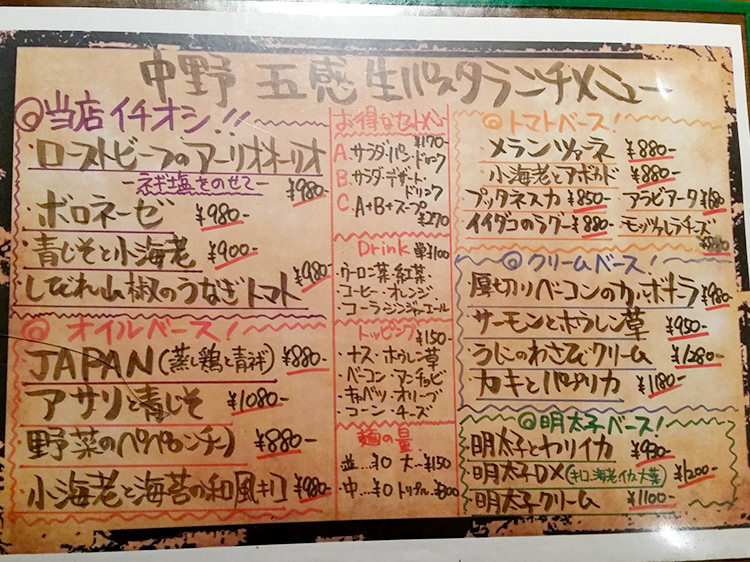 中野 五感 生パスタランチメニュー
◎当店イチオシ!!
・ローストビーフのアーリオオーリオ
ーネギ塩をのせてー ¥980-
・ボロネーゼ ¥980-
・青じそと小海老 ¥900-
・しびれ山椒のうなぎトマト ¥980-
◎オイルベース!
JAPAN(蒸し鶏と青ネギ) ¥880-
アサリと青じそ ¥1080-
野菜のペペロンチーノ ¥880-
小海老と海苔の和風 ¥980-
お得なセットメニュー
A. サラダ・パン・ドリンク ¥170-
B. サラダ・デザート・ドリンク
C. A+B+スープ ¥270
Drink 単¥100
・ウーロン茶・紅茶・
・コーヒー・オレンジ
・コーラ・ジンジャーエール
トッピング ¥150-
・ナス・ホウレン草
・ベーコン・アンチョビ
・キャベツ・オリーブ
・コーン・チーズ
麺の量
並…¥0 大…¥150
中…¥0 トリプル…¥300
◎トマトベース!
メランツァーネ ¥880-
小海老とアボカド ¥880-
プッタネスカ ¥850- アラビアータ
イイダコのラグー ¥880- モッツァレラチーズ
◎クリームベース!
厚切りベーコンのカルボナーラ ¥980-
サーモンとホウレン草 ¥950-
うにのわさびクリーム ¥1280-
カキとパプリカ ¥1180-
◎明太子ベース!
明太子とヤリイカ ¥930-
明太子DX(キノコ 海老 イカ 大葉) ¥1200-
明太子クリーム ¥1100-